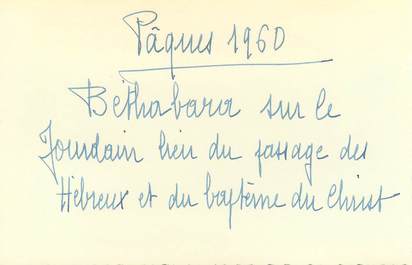 Pâques 1960
Béthabara sur le
Jourdain lieu du passage des
Hébreux et du baptême du Christ